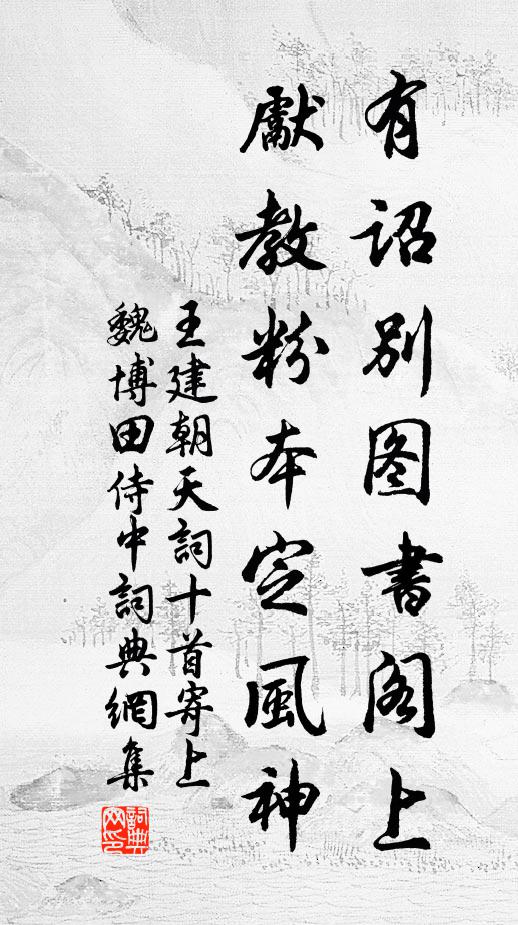 有诏别图书阁上
献教粉本定風神
王建朝天詞十首寄上
魏博田侍中詞典網集
詞典网印